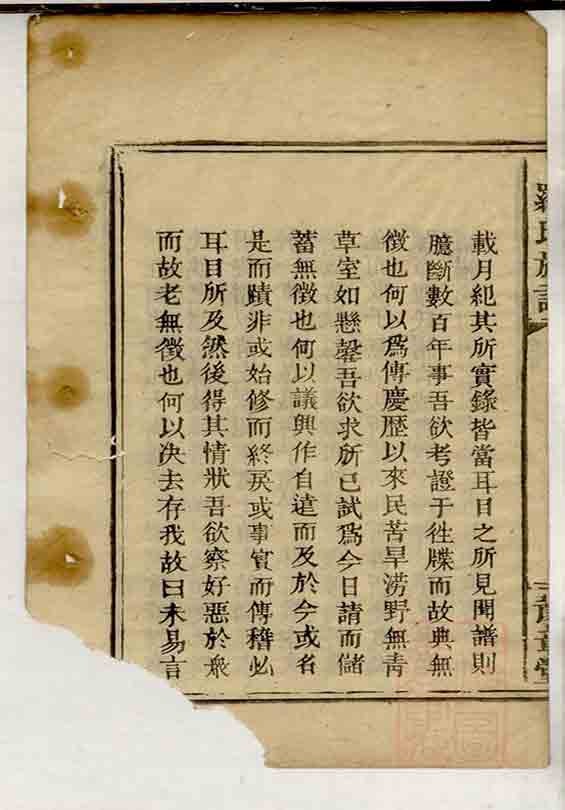 羅氏族譜
載月紀其所實錄皆當耳目之所見聞譜則
臆斷數百年事吾欲考證于徃牒而故典無
徵也何以爲傳慶歷以來民苦旱澇野無青
草室如懸罄吾欲求所已試爲今日請而儲
蓄無徵也何以議興作自遠而及於今或名
是而蹟非或始修而終戾或事實而傳稽必
耳目所及然後得其情狀吾欲察好惡於衆
而故老無徵也何以决去存我故曰未易言